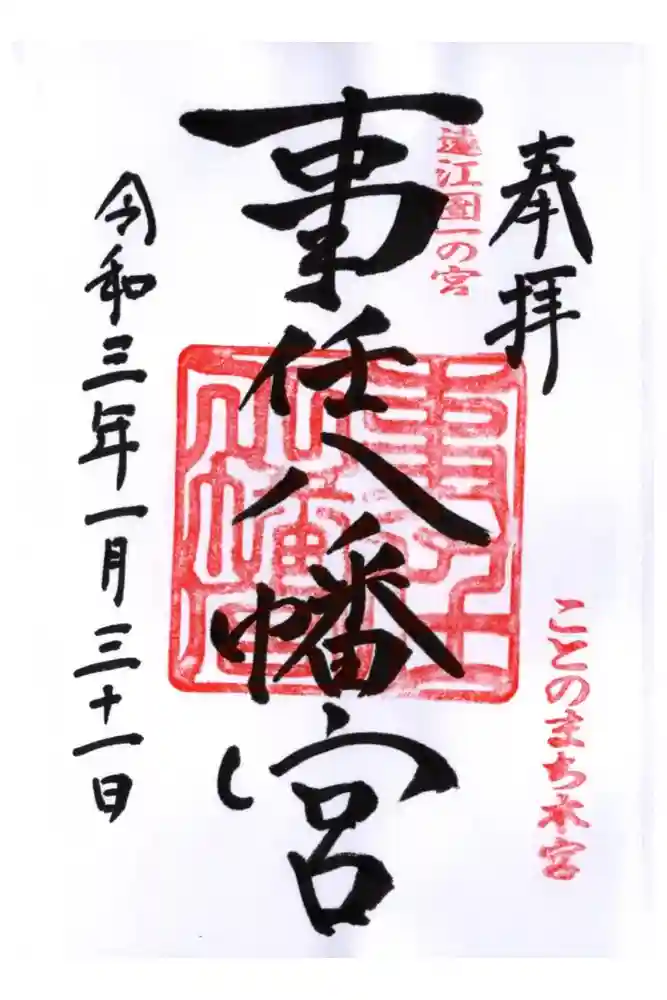 奉拝
遠江國一の宮
ことのまち本宮
事任八幡宮
令和三年一月三十一日